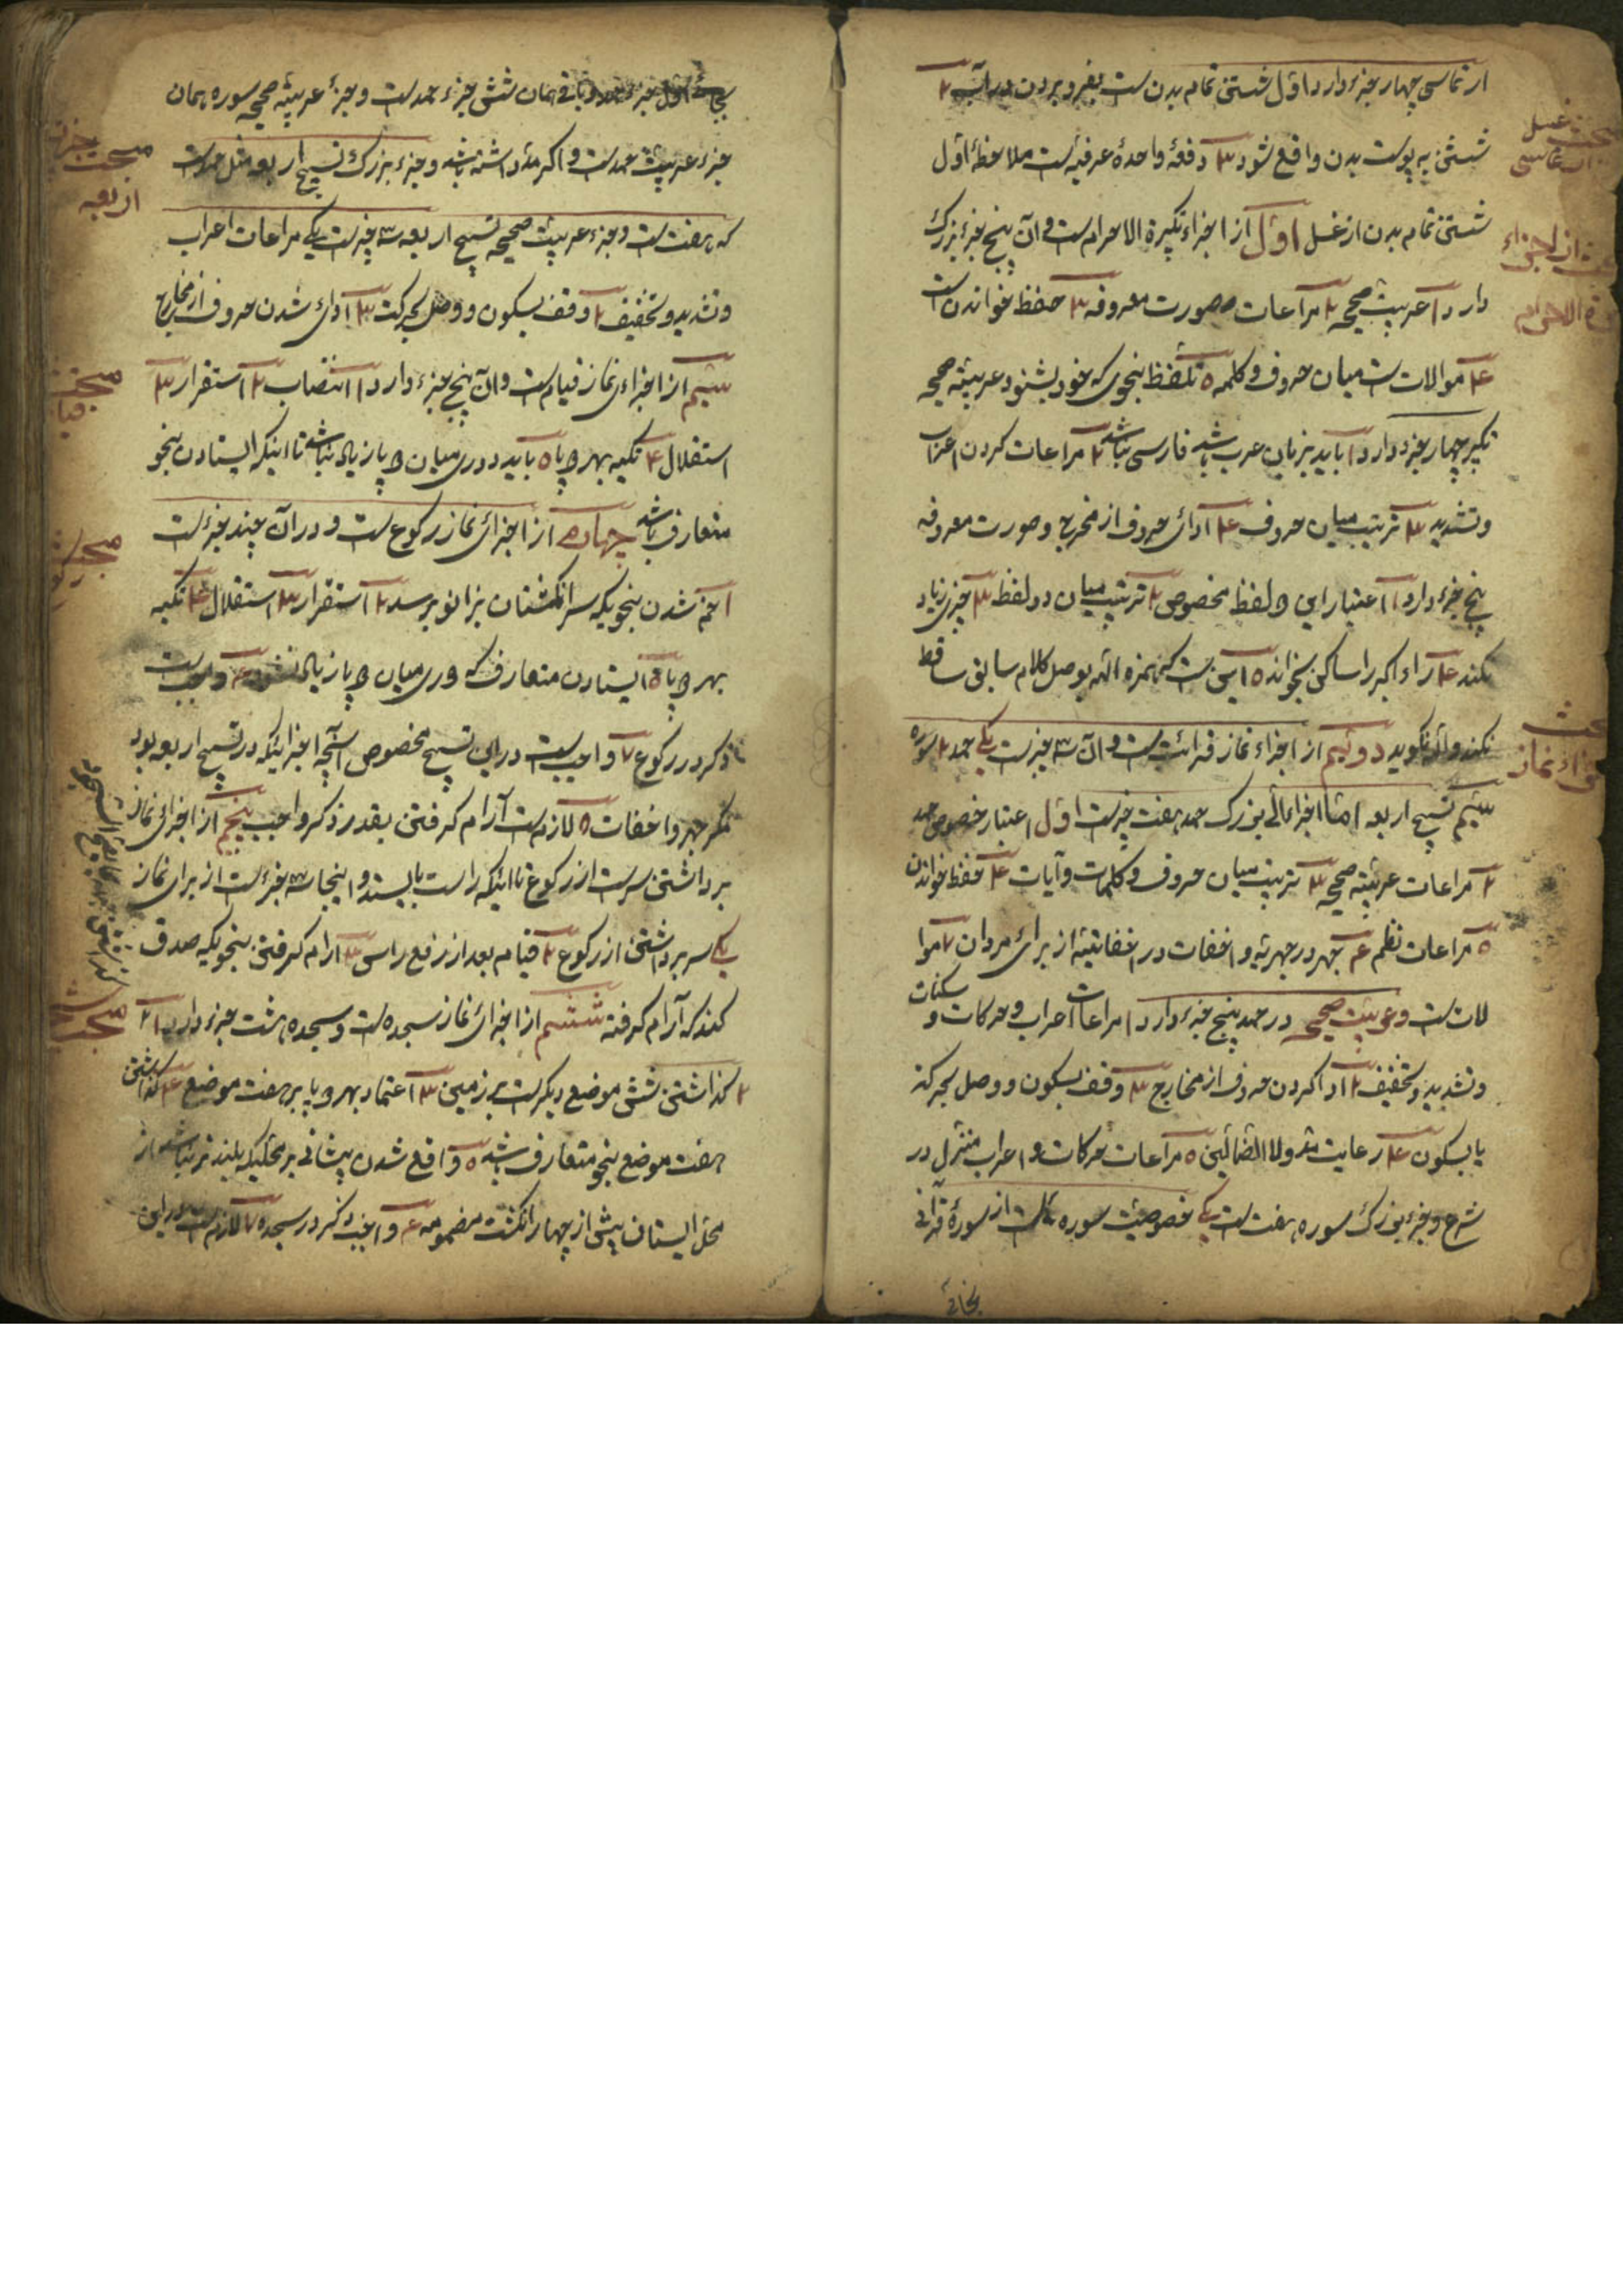 ارتماسی چهار جزء دارد اول شستن تمام بدن است بفرو بردن در آب ۲
شستن به پوست بدن واقع شود ۳ دفعهٔ واحدهٔ عرفیه است ملاحظهٔ اول
شستن تمام بدن از غسل اول از اجزاء تکبیرة الاحرام است و آن پنج جزء بزرک
دارد ۱ عربیت صحیحه ۲ مراعات صورت معروفه ۳ حفظ خواندن است
۴ موالات است میان حروف و کلمه ۵ تلفظ بنحوی که خود بشنود عربیته صحیحه
تکبیر چهار جزء دارد ۱ باید بزبان عرب باشد فارسی نباشد ۲ مراعات کردن اعراب
و تشدید ۳ ترتیب میان حروف ۴ ادای حروف از مخرج و صورت معروفه
پنج جزء دارد ۱ اعتبار این دو لفظ مخصوص ۲ ترتیب میان دو لفظ ۳ چیزی زیاد
نکند ۴ راء اکبر را ساکن بخواند ۵ این است که همزه الله بوصل کلام سابق ساقط
نکند و الله نکوید دوئیم از اجزاء نماز قرائت است و آن سه چیز است یکی حمد ۲ سوره
سیّم تسبیح اربعه امّا اجزاهائی بزرک حمد هفت چیز است اول اعتبار خصوص حمد
۲ مراعات عربیته صحیحه ۳ ترتیب میان حروف و کلمات و آیات ۴ حفظ خواندن
۵ مراعات نظم ۶ جهر در جهریه و اخفات در اخفاتیه از برای مردان ۷ موا
لات است و عربیت صحیحه در حمد پنج جزء دارد ۱ مراعات اعراب و حرکات و سکنات
و تشدید و تخفیف ۲ ادا کردن حروف از مخارج ۳ وقف بسکون و وصل بحرکة
یا بسکون ۴ رعایت مدّ ولا الضالین ۵ مراعات حرکات و اعراب منزل در
شرع و جزء بزرک سوره هفت است یکی خصوصیت سوره است از سورهٔ قرآنی
بجای
مبحث غسل
ارتماسی
الاحرام
اجزاء نماز
بجای اول جزء و باقی همان شش جزء حمد است و جزء عربیته صحیحه سوره همان
جزء عربیت حمد است و اکر مدّ داشته باشد و جزء بزرک تسبیح اربعه مثل حمد است
که هفت است و جزء عربیت صحیحه تسبیح اربعه سه چیز است یکی مراعات اعراب
و تشدید و تخفیف ۲ وقف بسکون و وصل بحرکت ۳ ادای شدن حروف از مخارج
سیّم از اجزاء نماز قیام است و آن پنج جزء دارد ۱ انتصاب ۲ استقرار ۳
استقلال ۴ تکیه بهر دو پا ۵ باید دوری میان دو پا زیاد نباشد تا اینکه ایستادن بنحو
متعارف باشد چهارم از اجزای نماز رکوع است و در آن چند جزء است
۱ خم شدن بنحویکه سر انکشتان بزانو برسد ۲ استقرار ۳ استقلال ۴ تکیه
بهر دو پا ۵ ایستادن متعارف که دوری میان دو پا زیاد نشود ۶ واجب است
ذکر در رکوع ۷ واجب است در این تسبیح مخصوص آنچه اجزائیکه در تسبیح اربعه بود
مکر جهر و اخفات ۵ لازم است آرام کرفتن بقدر ذکر واجب پنجم از اجزای نماز
برداشتن سر است از رکوع تا اینکه راست بایستد و اینجا سه جزء است از برای نماز
یکی سر برداشتن از رکوع ۲ قیام بعد از رفع راس ۳ ارام کرفتن بنحویکه صدق
کند که آرام کرفته ششم از اجزای نماز سجده است و سجده هشت جزء دارد ۱
۲ کذاشتن شش موضع دیکر است بر زمین ۳ اعتماد بهر دو پا بر هفت موضع ۴ کذاشتن
هفت موضع بنحو متعارف باشد ۵ واقع شدن پیشانی بر محلیکه بلندتر نباشد از
محل ایستان بیش از چهار انکشت مضمومه ۶ واجب ذکر در سجده ۷ لازم است در این
مبحث جزء
اربعه
مبحث
قیام
مبحث
مبحث